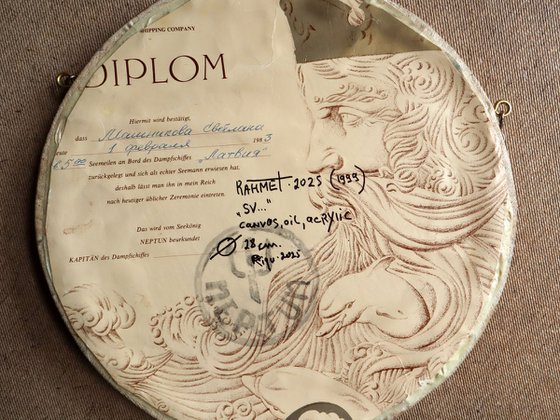 SHIPPING COMPANY
DIPLOM
Hiermit wird bestätigt,
dass Машникова Светлана
1 февраля 1983
Seemeilen an Bord des Dampfschiffes „Латвия"
zurückgelegt und sich als echter Seemann erwiesen hat,
deshalb lässt man ihn in mein Reich
nach heutiger üblicher Zeremonie eintreten.
Das wird vom Seekönig
NEPTUN beurkundet
KAPITÄN des Dampfschiffes
RAHMET·2025 (1999)
„SV..."
canvas, oil, acrylic
Ø 28 cm.
Riga·2025
NEPTUN